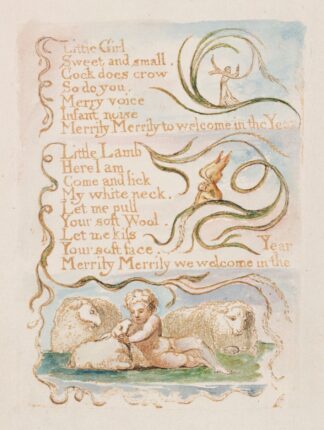 Little Girl
Sweet and small.
Cock does crow
So do you.
Merry voice
Infant noise
Merrily Merrily to welcome in the Year
Little Lamb
Here I am.
Come and lick
My white neck.
Let me pull
Your soft Wool.
Let me kiss
Your soft face.
Merrily Merrily we welcome in the Year